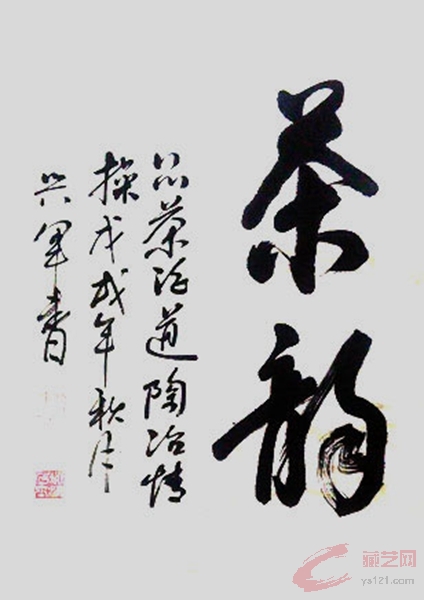 茶韵
品茶论道陶冶情
操戊戌年秋月
兴军书
藏艺网
ys121.com